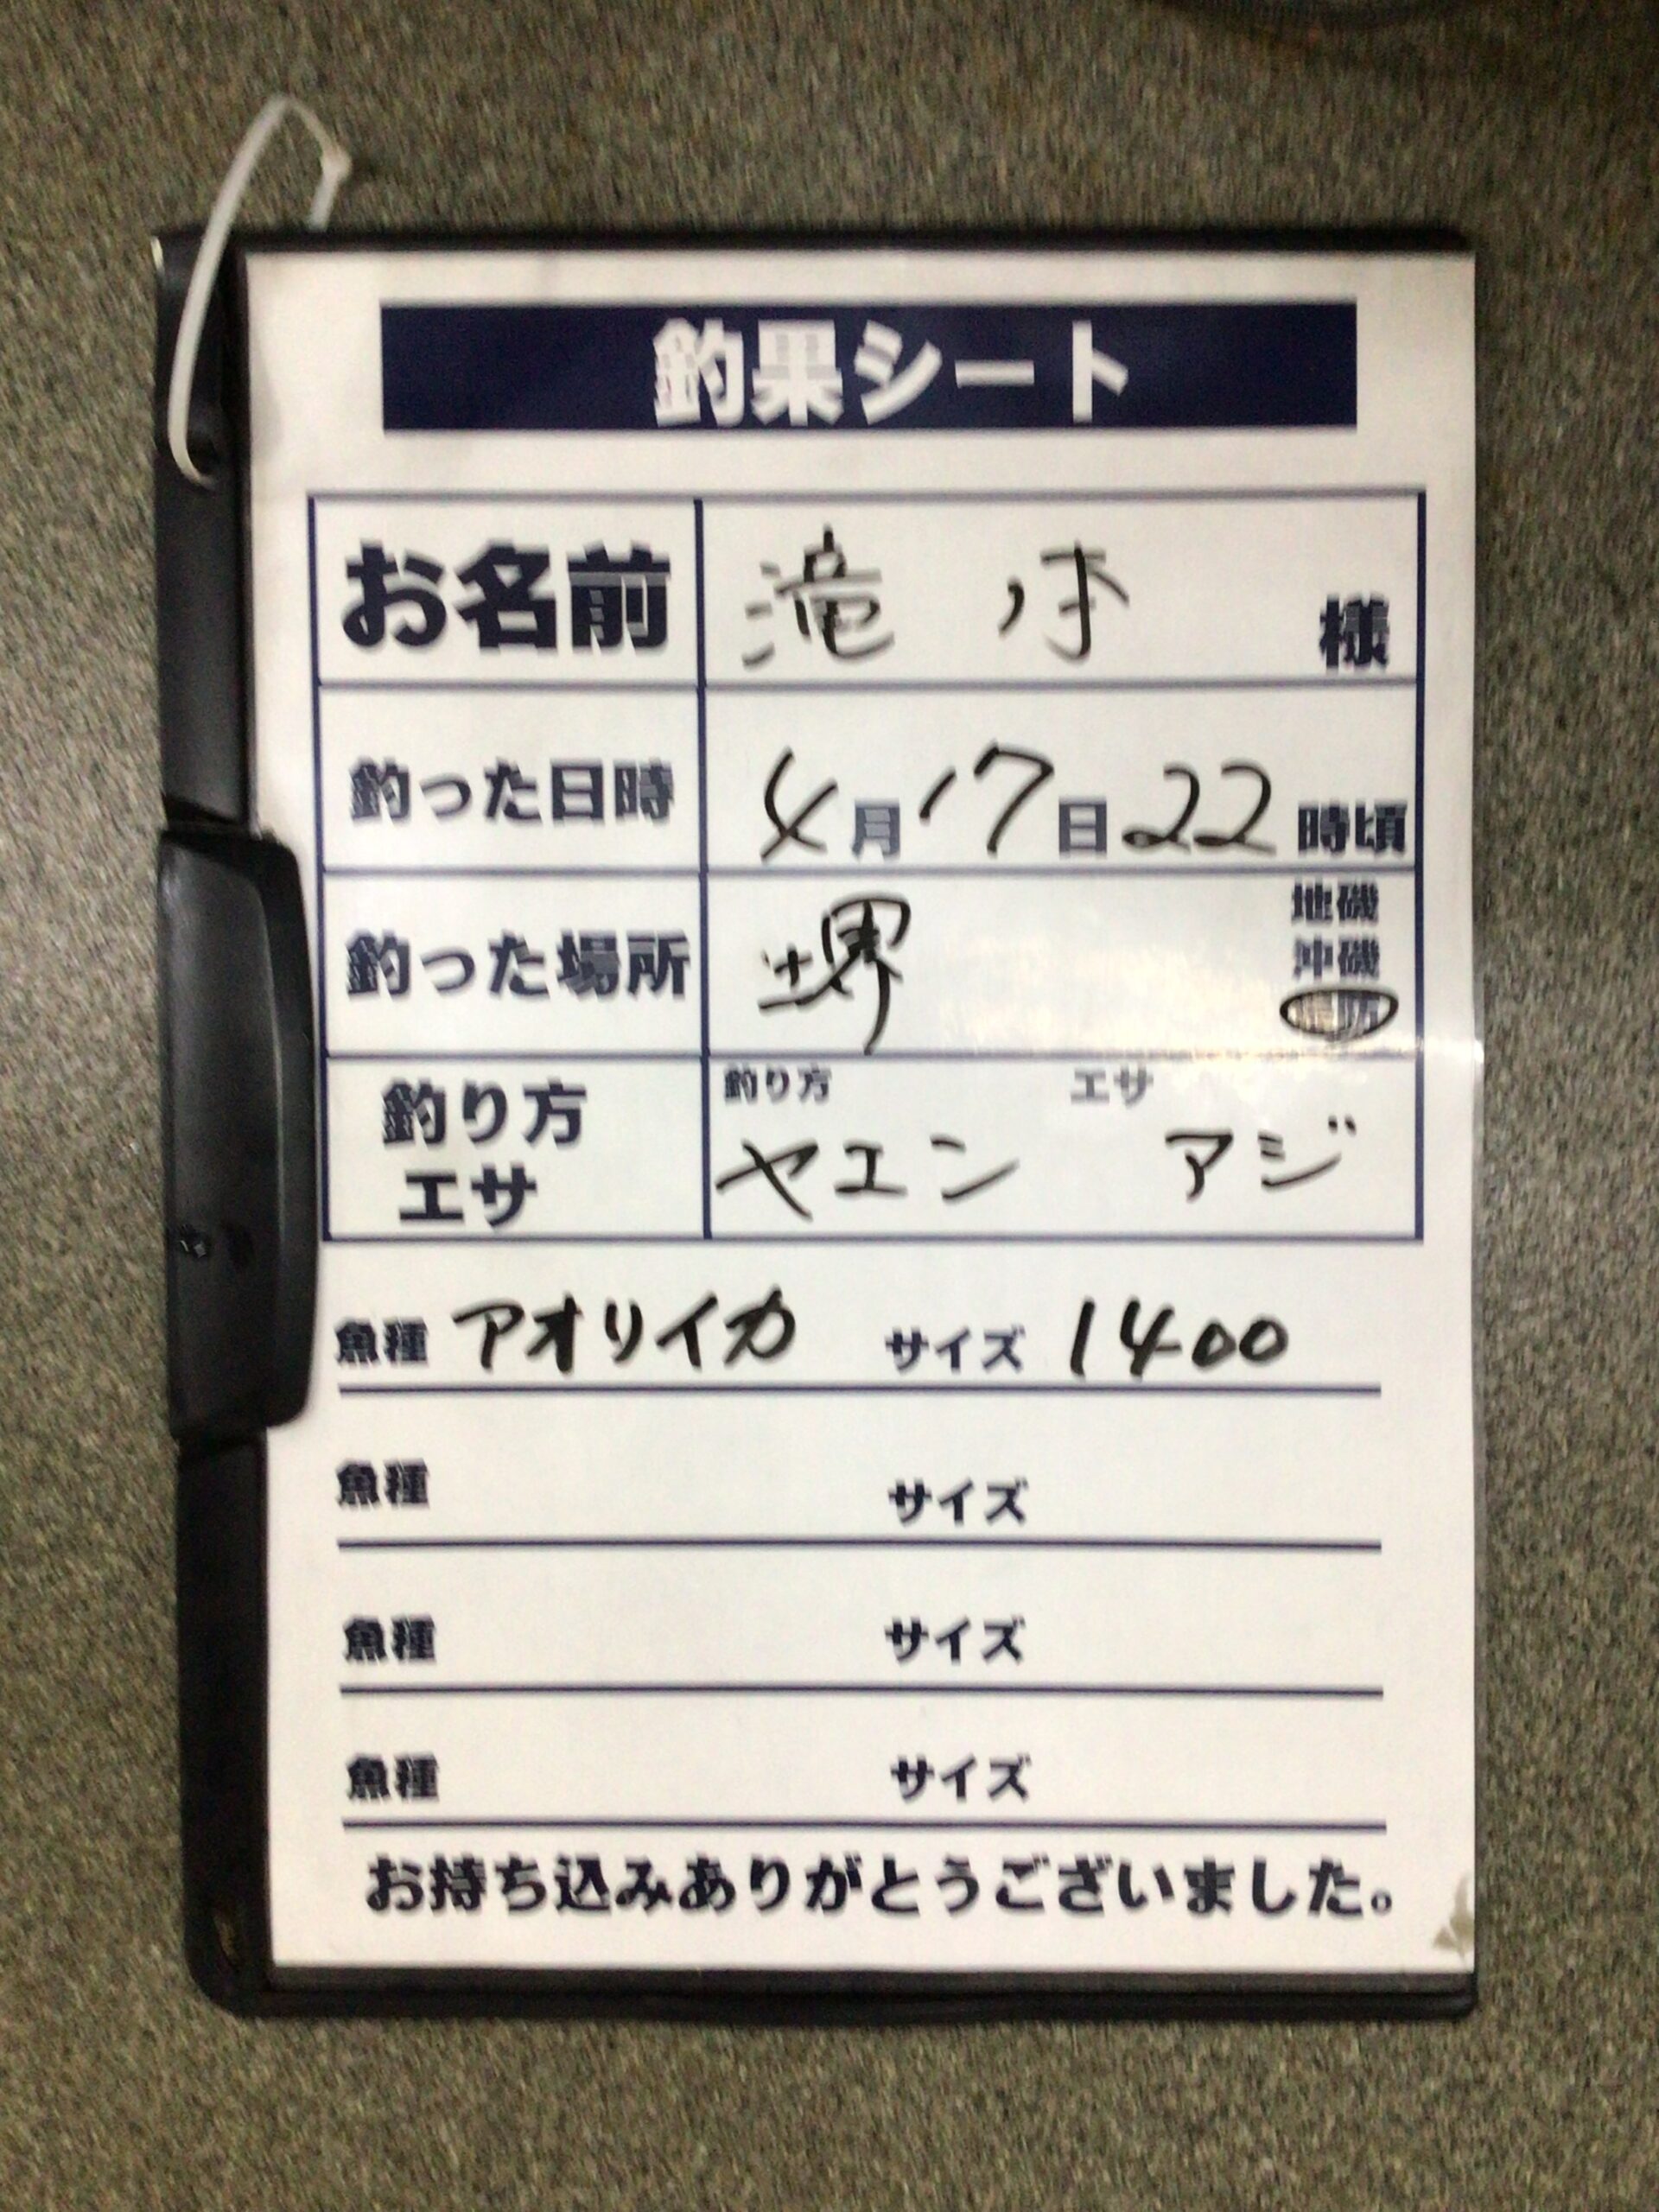 釣果シート
お名前 滝 様
釣った日時 4月17日22時頃
釣った場所 堺 地磯
沖磯
堤防
釣り方 エサ
釣り方 ヤエン エサ アジ
魚種 アオリイカ サイズ 1400
魚種 サイズ
魚種 サイズ
魚種 サイズ
お持ち込みありがとうございました。